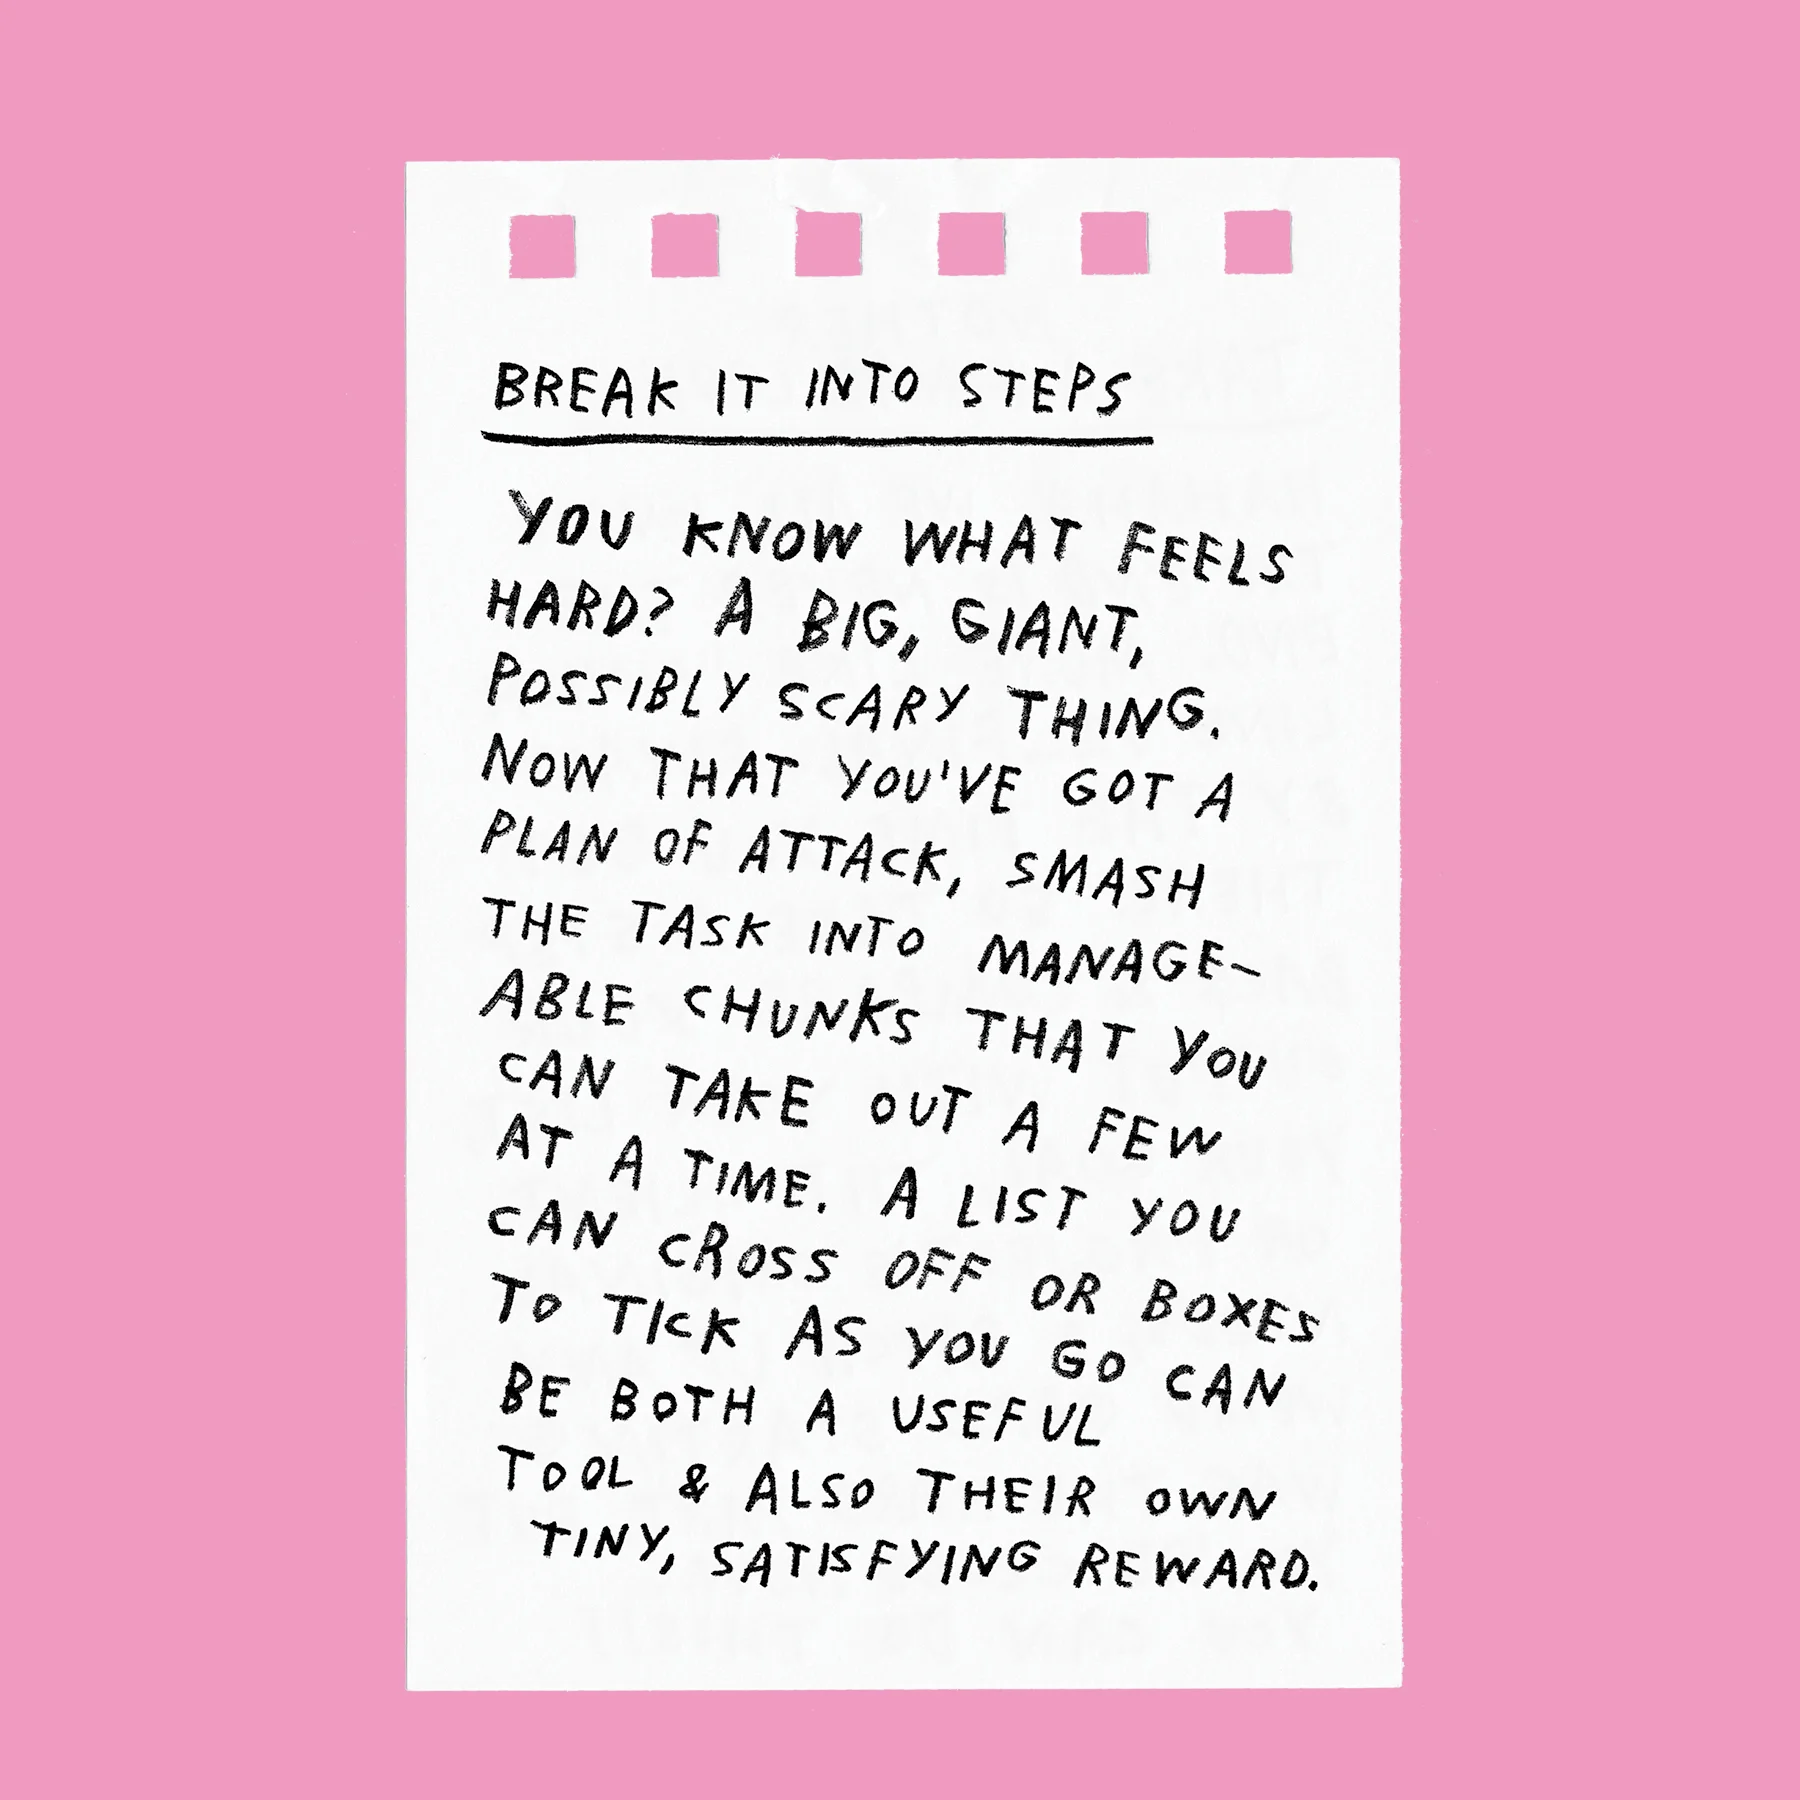 BREAK IT INTO STEPS
YOU KNOW WHAT FEELS
HARD? A BIG, GIANT,
POSSIBLY SCARY THING.
NOW THAT YOU'VE GOT A
PLAN OF ATTACK, SMASH
THE TASK INTO MANAGE-
ABLE CHUNKS THAT YOU
CAN TAKE OUT A FEW
AT A TIME. A LIST YOU
CAN CROSS OFF OR BOXES
TO TICK AS YOU GO CAN
BE BOTH A USEFUL
TOOL & ALSO THEIR OWN
TINY, SATISFYING REWARD.